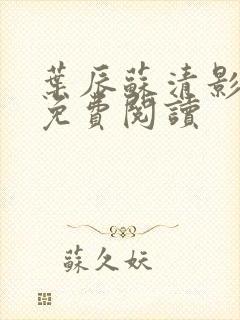 葉辰蘇清影
免費閱讀
蘇久妖